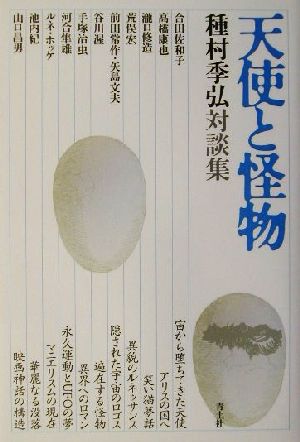 天使と怪物
種村季弘対談集
合田佐和子
高橋康也
瀧口修造
荒俣宏
前田常作・矢島文夫
谷川渥
手塚治虫
河合隼雄
ルネ・ホッケ
池内紀
山口昌男
宙から堕ちてきた天使
アリスの国へ
笑い猫夢話
異貌のルネッサンス
隠された宇宙のロゴス
遍在する怪物
異界へのロマン
永久運動とUFOの夢
マニエリスムの現在
華麗なる没落
映画神話の構造
青土社